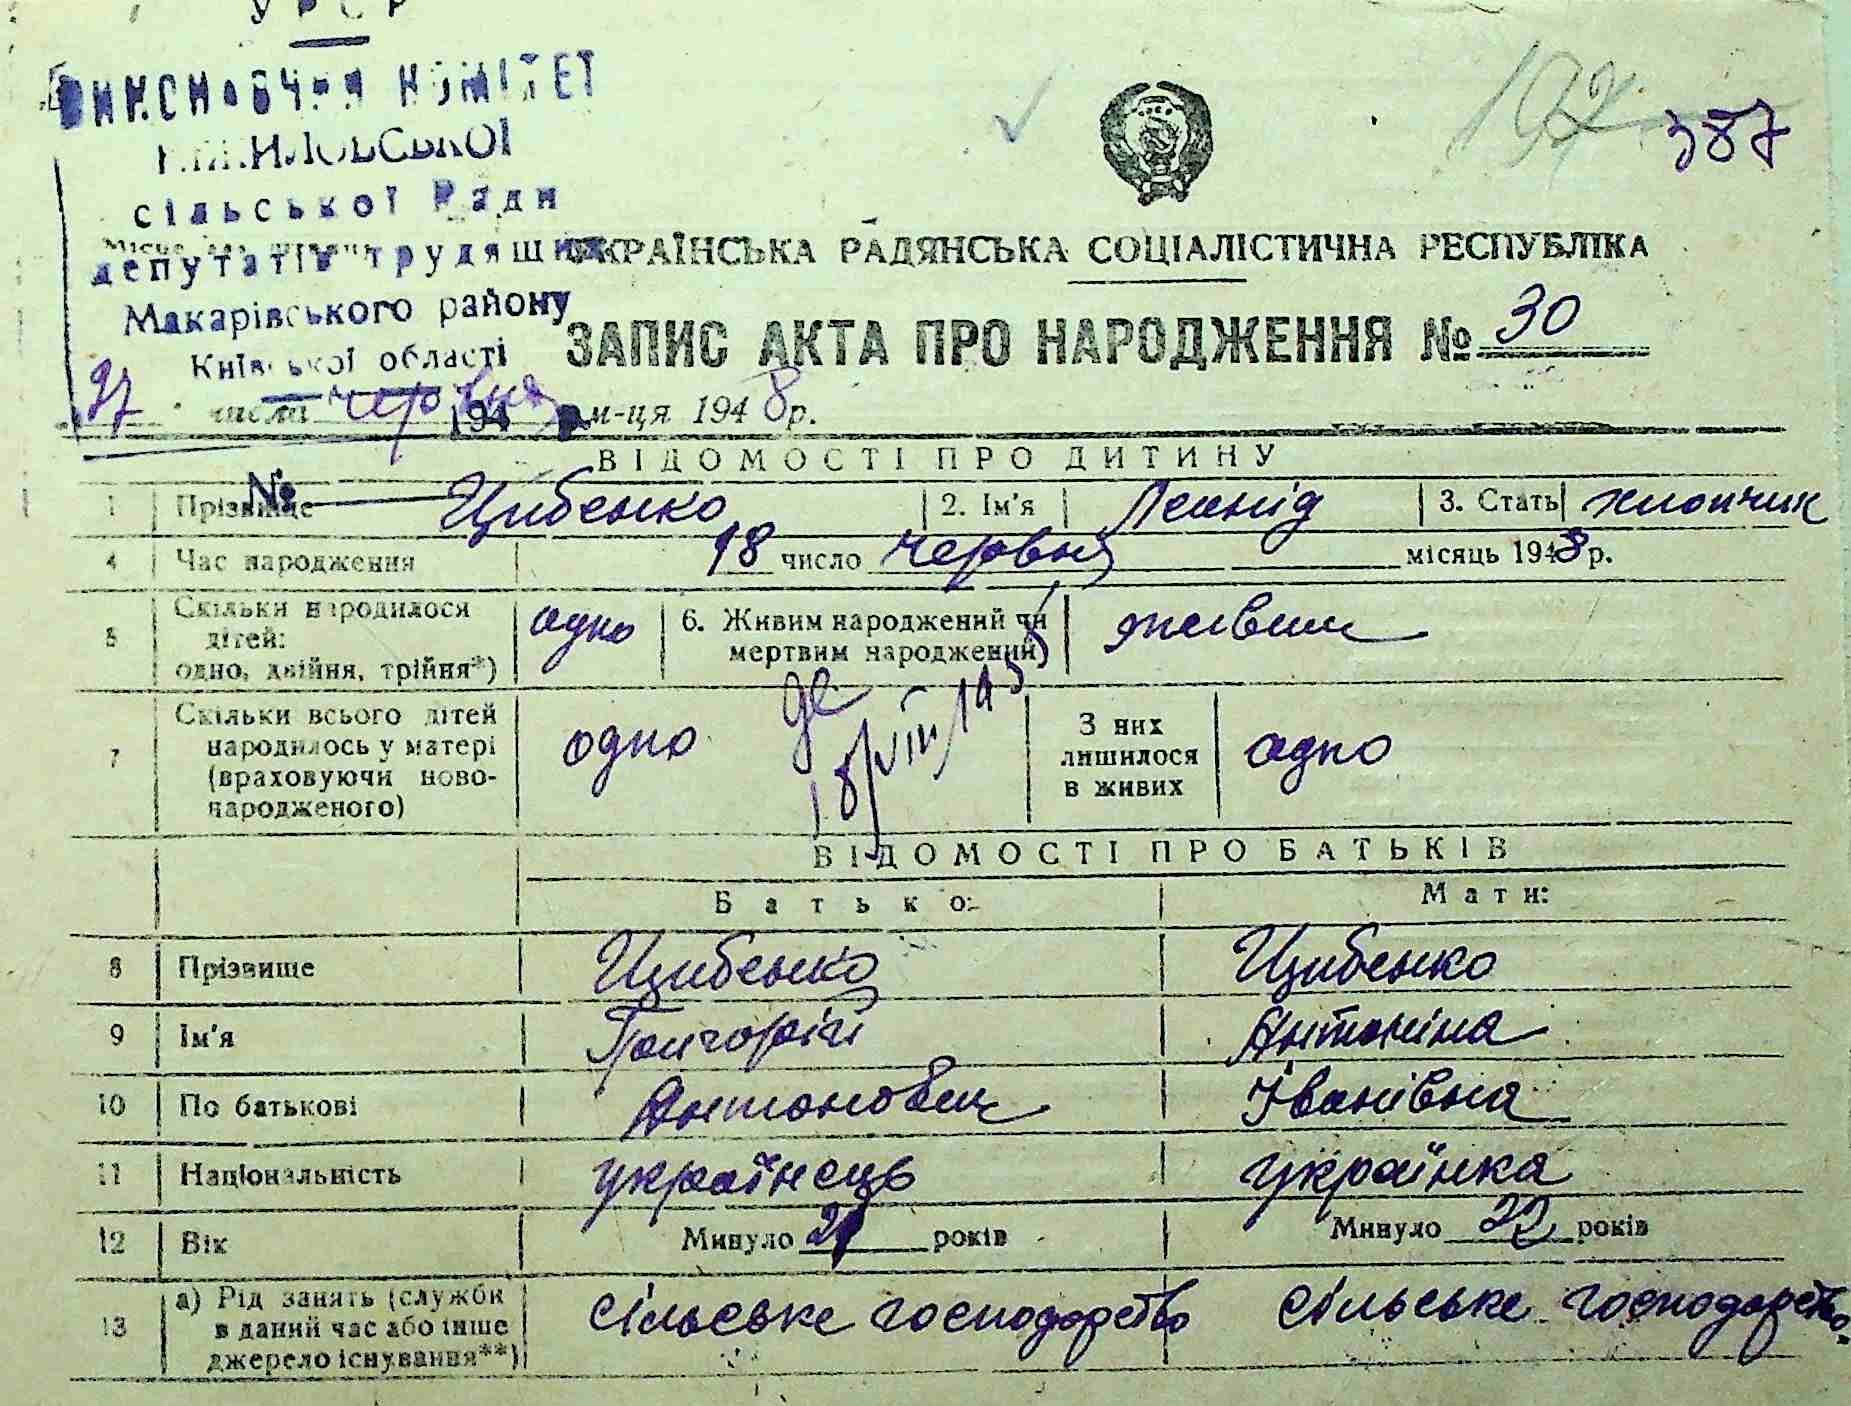 УРСР
ВИКОНАВЧИЙ КОМІТЕТ
сільської Ради
депутатів трудящих
Макарівського району
Київської області
387
УКРАЇНСЬКА РАДЯНСЬКА СОЦІАЛІСТИЧНА РЕСПУБЛІКА
ЗАПИС АКТА ПРО НАРОДЖЕННЯ № 30
27 числа червня м-ця 1948 р.
194
№
ВІДОМОСТІ ПРО ДИТИНУ
1 Прізвище Цибенко 2. Ім'я Леонід 3. Стать хлопчик
4 Час народження 18 число червня місяць 1948 р.
5 Скільки народилося
дітей:
одно, двійня, трійня*)
одно
6. Живим народжений чи
мертвим народжений)
живим
7 Скільки всього дітей
народилось у матері
(враховуючи ново-
народженого)
одно
18/VIII 195
З них
лишилося
в живих
одно
ВІДОМОСТІ ПРО БАТЬКІВ
Батько: Мати:
8 Прізвище Цибенко Цибенко
9 Ім'я Григорій Антоніна
10 По батькові Антонович Іванівна
11 Національність українець українка
12 Вік Минуло 21 років Минуло 22 років
13 а) Рід занять (служби
в даний час або інше
джерело існування**)
сільське господарство сільське господарство